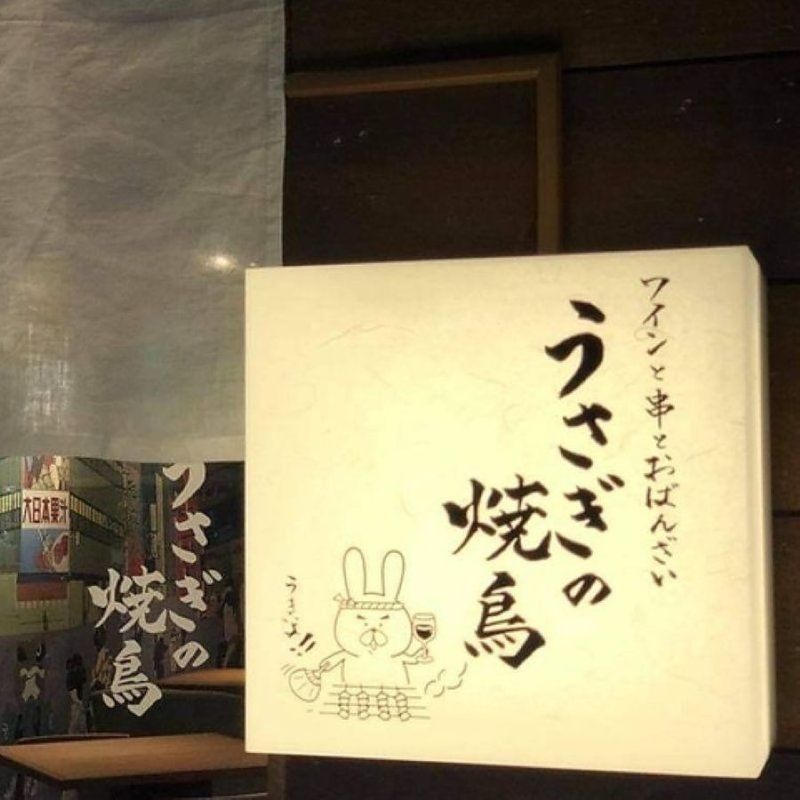 ワインと串とおばんざい
うさぎの
焼鳥
うさぎの
焼鳥
大日本果汁